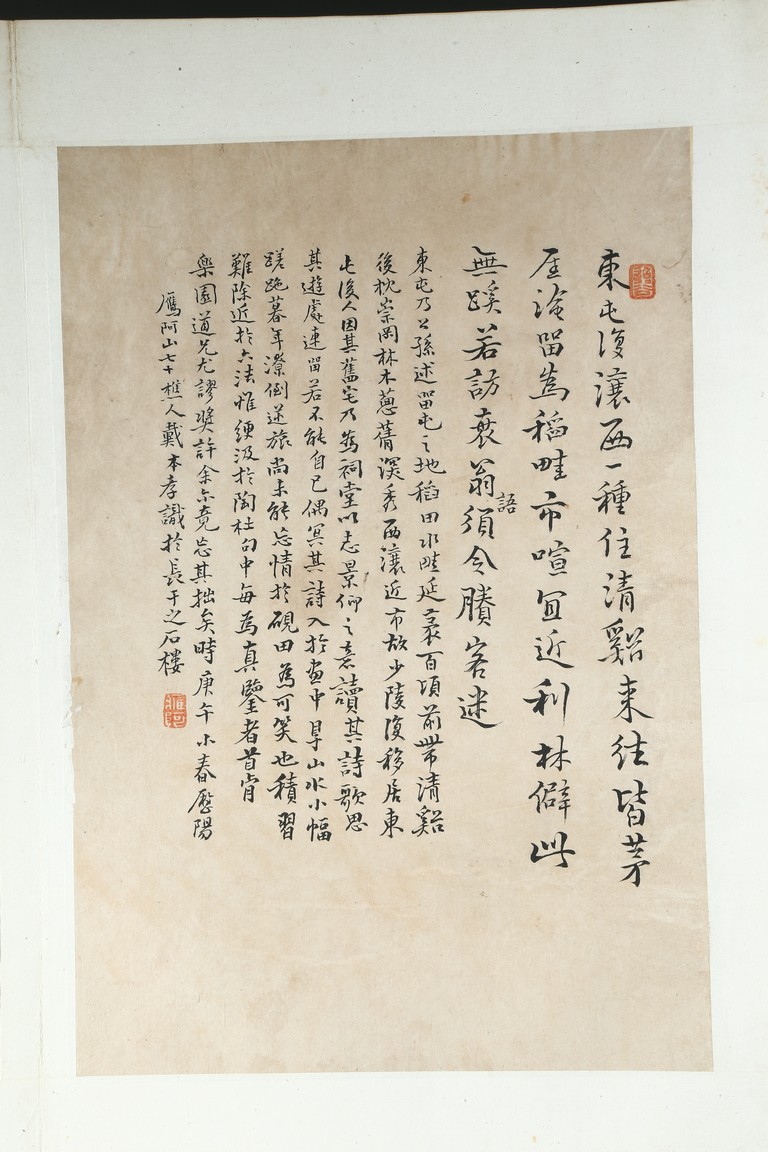 東屯復瀼西一種住清谿来往皆茅
屋淹留為稻畦市喧宜近利林僻此
無蹊若訪衰翁語須令賸客迷
東屯乃公孫述留屯之地稻田水畦延袤百頃前带清谿
後枕崇岡林木蔥蒨深秀西瀼近市故少陵復移居東
屯後人因其舊宅乃為祠堂以志景仰之意讀其詩歌思
其遊處連留若不能自已偶冥其詩入於畫中早山水小幅
蹉跎暮年潦倒逆旅尚未能忘情於硯田為可笑也積習
難除近於六法惟綆汲於陶杜句中每為真鑒者首肯
樂園道兄尤謬奬許余亦竟忘其拙矣時庚午小春歷陽
鷹阿山七十樵人戴本孝識於長干之石樓
鷹阿